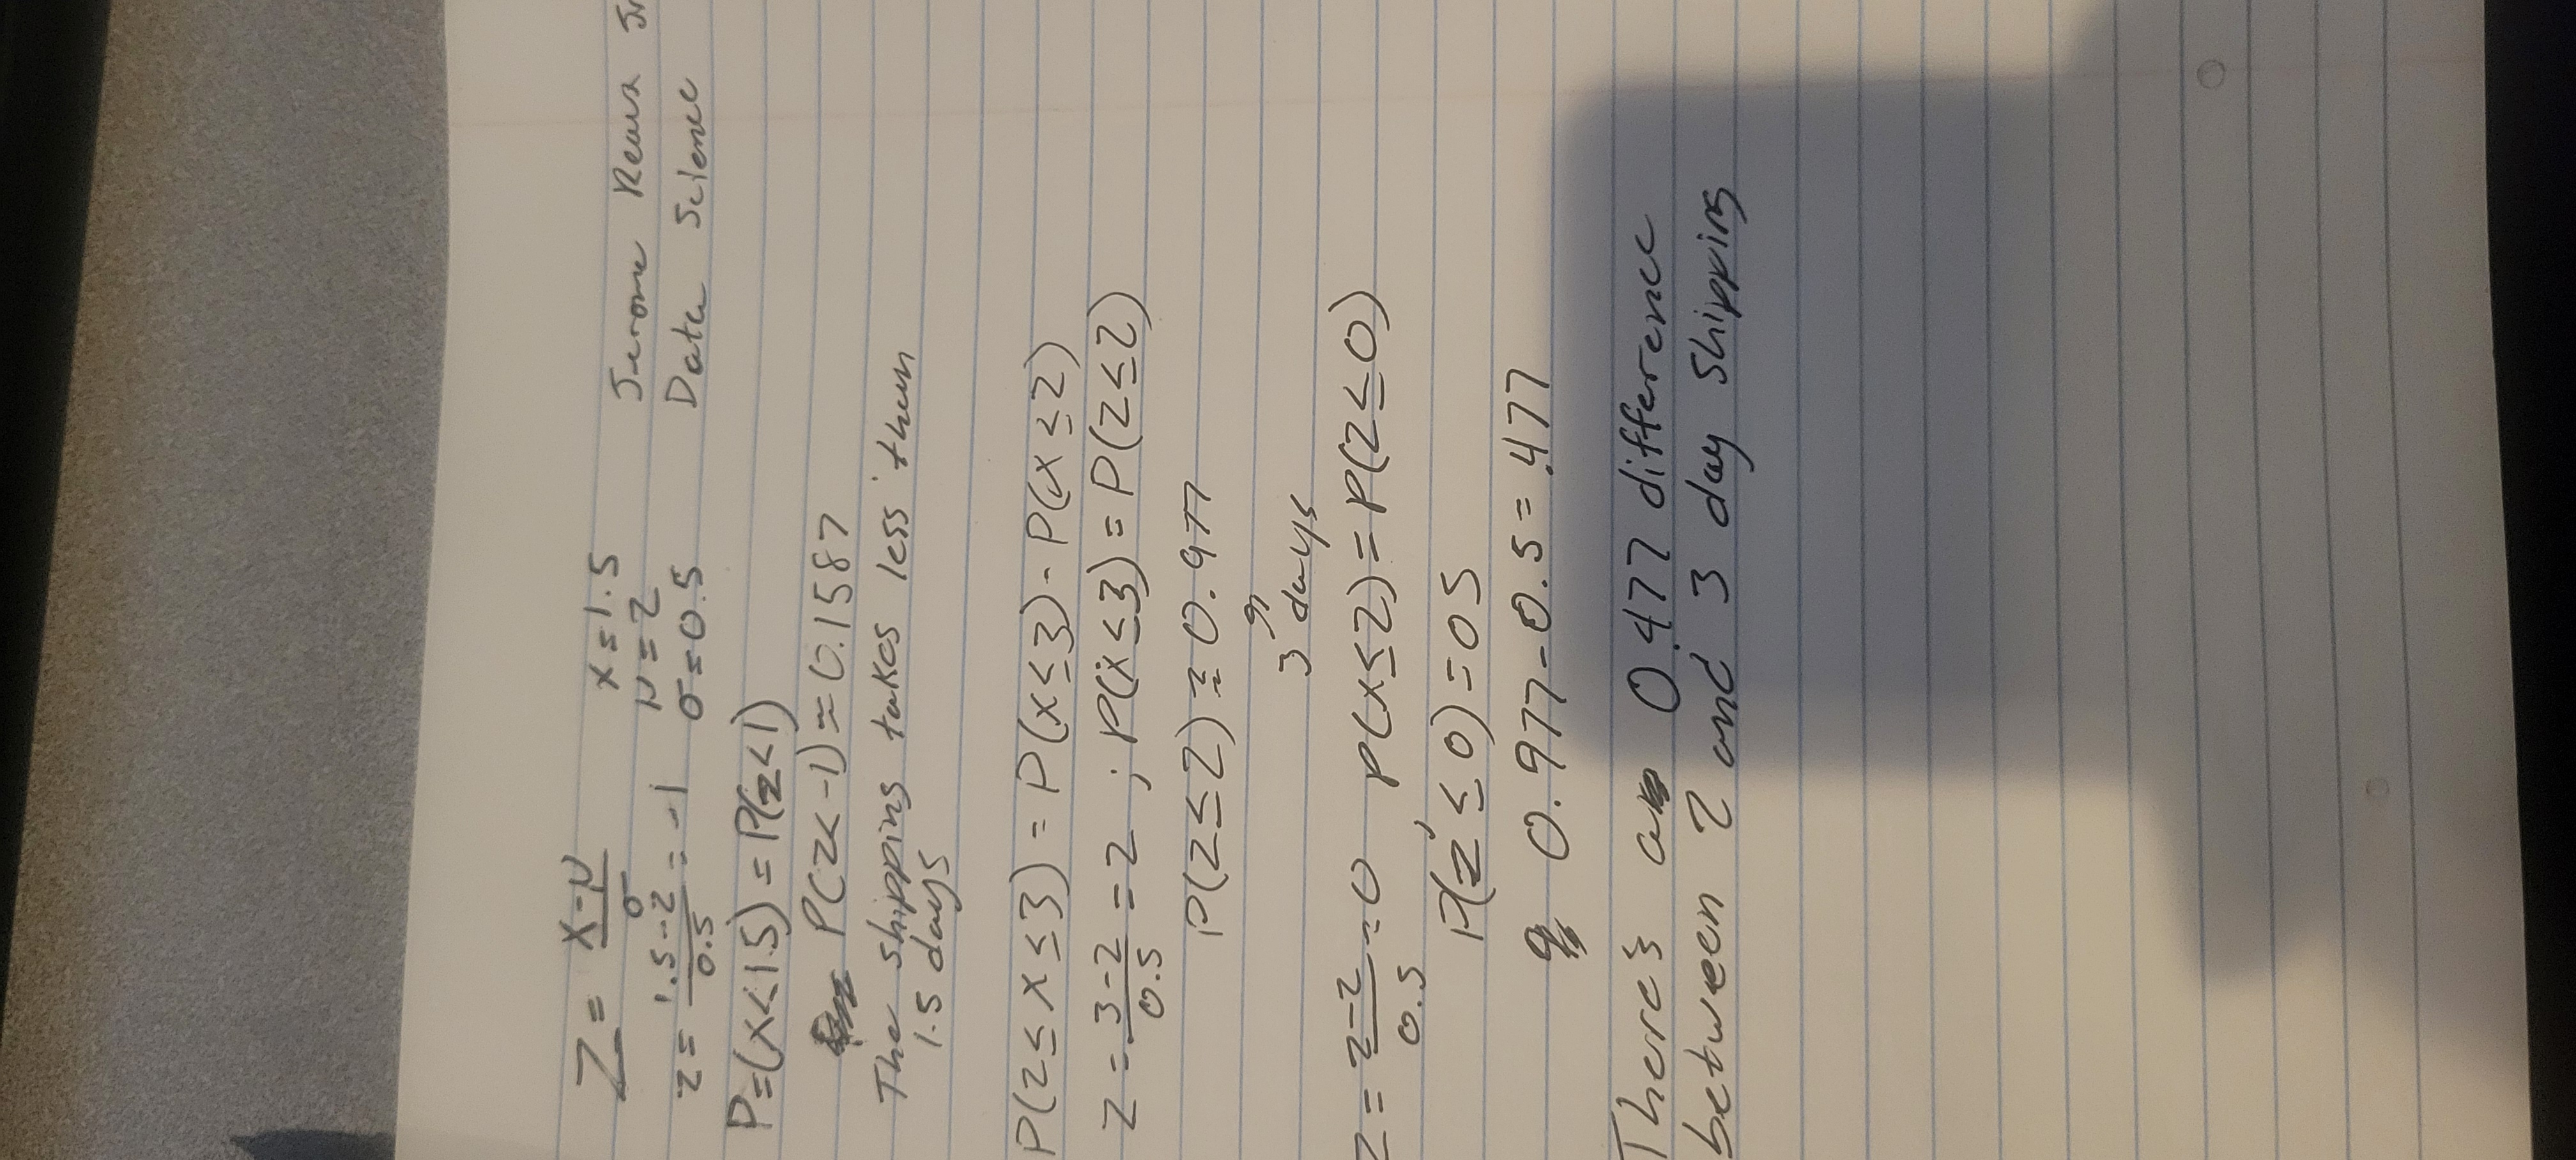 Z = (x-μ)/σ x = 1.5 Jerome
z = (1.5-2)/0.5 = -1 μ = 2
σ = 0.5 Data Science
P=(x<1.5) = P(z<1)
P(z<-1) ≈ 0.1587
The shipping takes less then
1.5 days
P(2≤x≤3) = P(x≤3) - P(x≤2)
Z = (3-2)/0.5 = 2 ; P(x≤3) = P(Z≤2)
P(Z≤2) ≈ 0.977
3 days
Z = (2-2)/0.5 = 0 , P(x≤2) = P(Z≤0)
P(z≤0) = 05
0.977-0.5= .477
There's a 0.477 difference
between 2 and 3 day Shipping